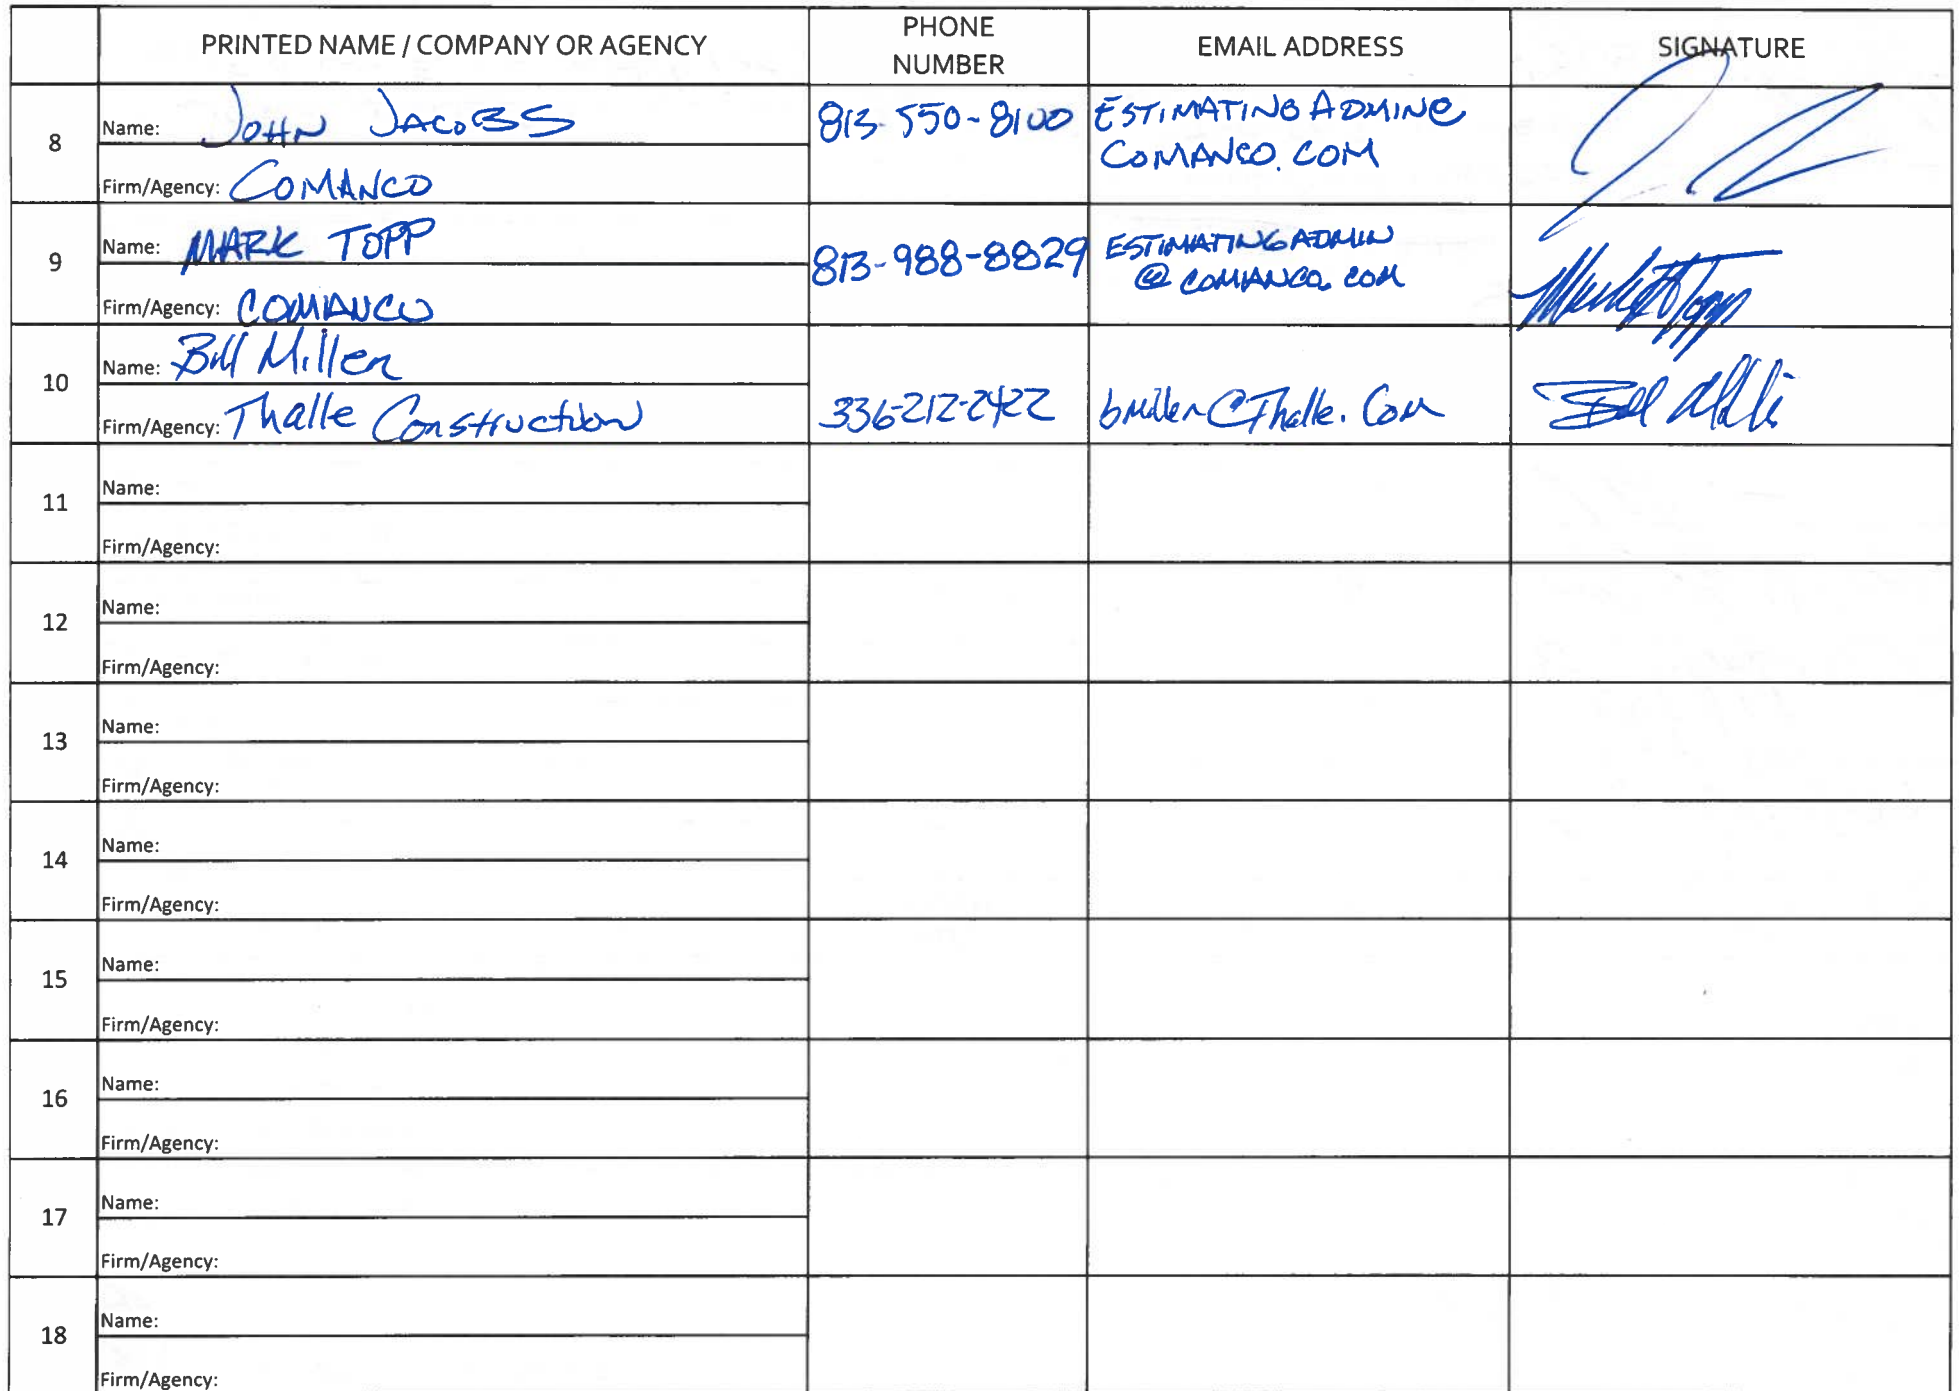 PRINTED NAME / COMPANY OR AGENCY
PHONE
NUMBER
EMAIL ADDRESS
SIGNATURE
8
Name: JOHN JACOBS
Firm/Agency: COMANCO
813-550-8100
ESTIMATINGADMIN@
COMANCO.COM
9
Name: MARK TOPP
Firm/Agency: COMANCO
813-988-8829
ESTIMATINGADMIN
@ COMANCO.COM
10
Name: Bill Miller
Firm/Agency: Thalle Construction
336-212-2422
bmiller@Thalle.Com
11
Name:
Firm/Agency:
12
Name:
Firm/Agency:
13
Name:
Firm/Agency:
14
Name:
Firm/Agency:
15
Name:
Firm/Agency:
16
Name:
Firm/Agency:
17
Name:
Firm/Agency:
18
Name:
Firm/Agency: